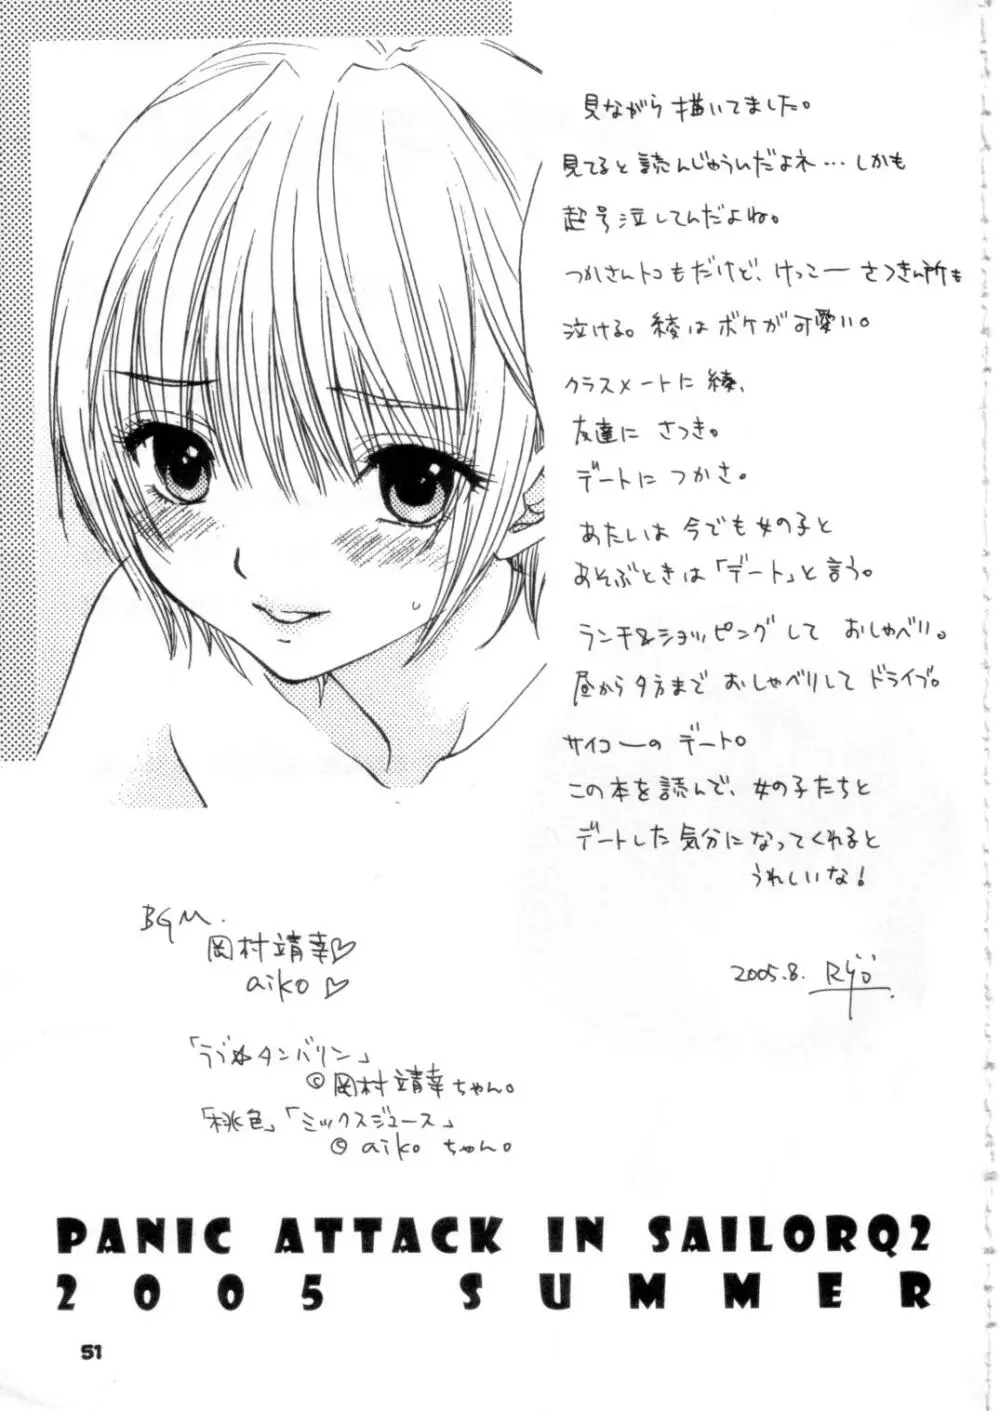 見ながら描いてました。
見てると読んじゃういだよネ…しかも
超号泣してんだよね。
つかさんトコもだけど、けっこーさつきん所も
泣ける。綾はボケが可愛い。
クラスメートに綾、
友達にさつき。
デートにつかさ。
あたいは今でも女の子と
あそぶときは「デート」と言う。
ランチ&ショッピングして おしゃべり。
昼から夕方まで おしゃべりして ドライブ。
サイコーの デート。
この本を読んで、女の子たちと
デートした気分になってくれると
うれしいな!
2005.8. Ryö
BGM.
岡村靖幸♡
aiko♡
「ラブ タンバリン」
©岡村靖幸ちゃん。
「桃色」「ミックスジュース」
© aiko ちゃん。
PANIC ATTACK IN SAILORQ2
2005 SUMMER
51